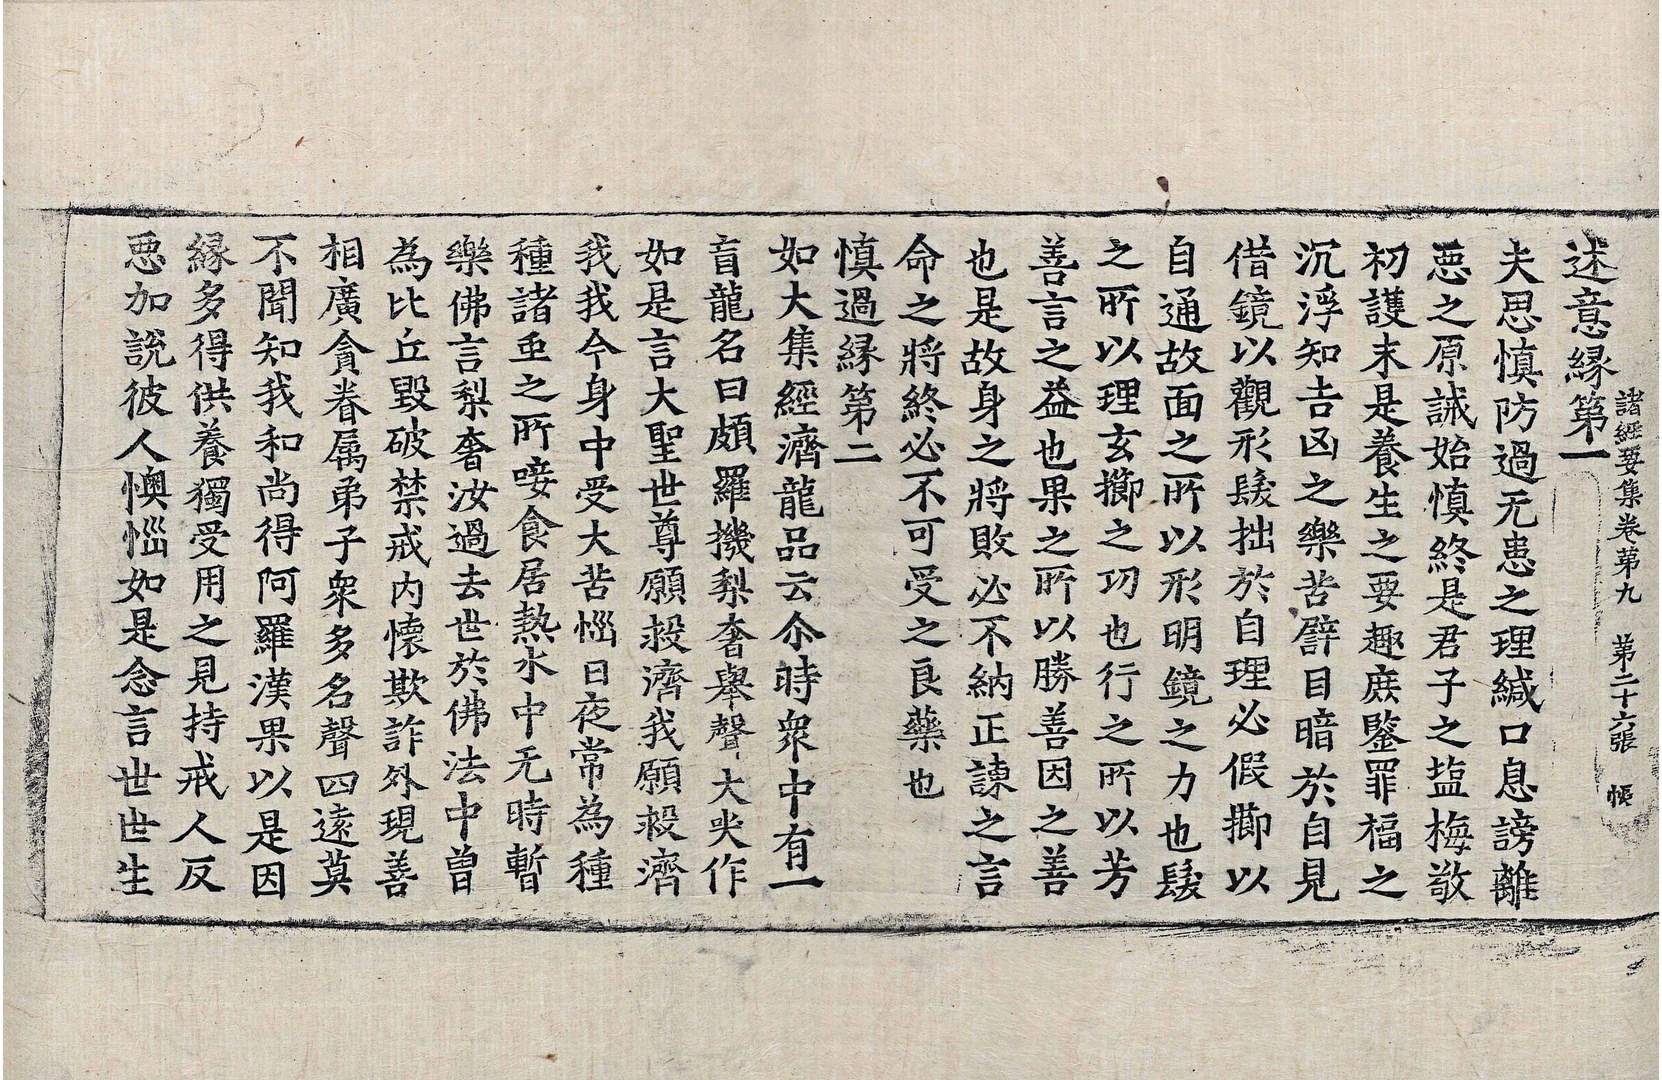 諸經要集卷第九　第二十六張　悞
述意緣第一
夫思慎防過无患之理緘口息謗離
惡之原誡始慎終是君子之塩梅敬
初護末是養生之要趣庶鑒罪福之
沉浮知吉凶之樂苦譬目暗於自見
借鏡以觀形髮拙於自理必假櫛以
自通故面之所以形明鏡之力也髮
之所以理玄櫛之功也行之所以芳
善言之益也果之所以勝善因之善
也是故身之將敗必不納正諫之言
命之將終必不可受之良藥也
慎過緣第二
如大集經濟龍品云尒時衆中有一
盲龍名曰頗羅機梨奢舉聲大哭作
如是言大聖世尊願救濟我願救濟
我我今身中受大苦惱日夜常為種
種諸䖝之所唼食居熱水中无時暫
樂佛言梨奢汝過去世於佛法中曾
為比丘毀破禁戒內懷欺詐外現善
相廣貪眷属弟子衆多名聲四遠莫
不聞知我和尚得阿羅漢果以是因
緣多得供養獨受用之見持戒人反
惡加說彼人懊惱如是念言世世生